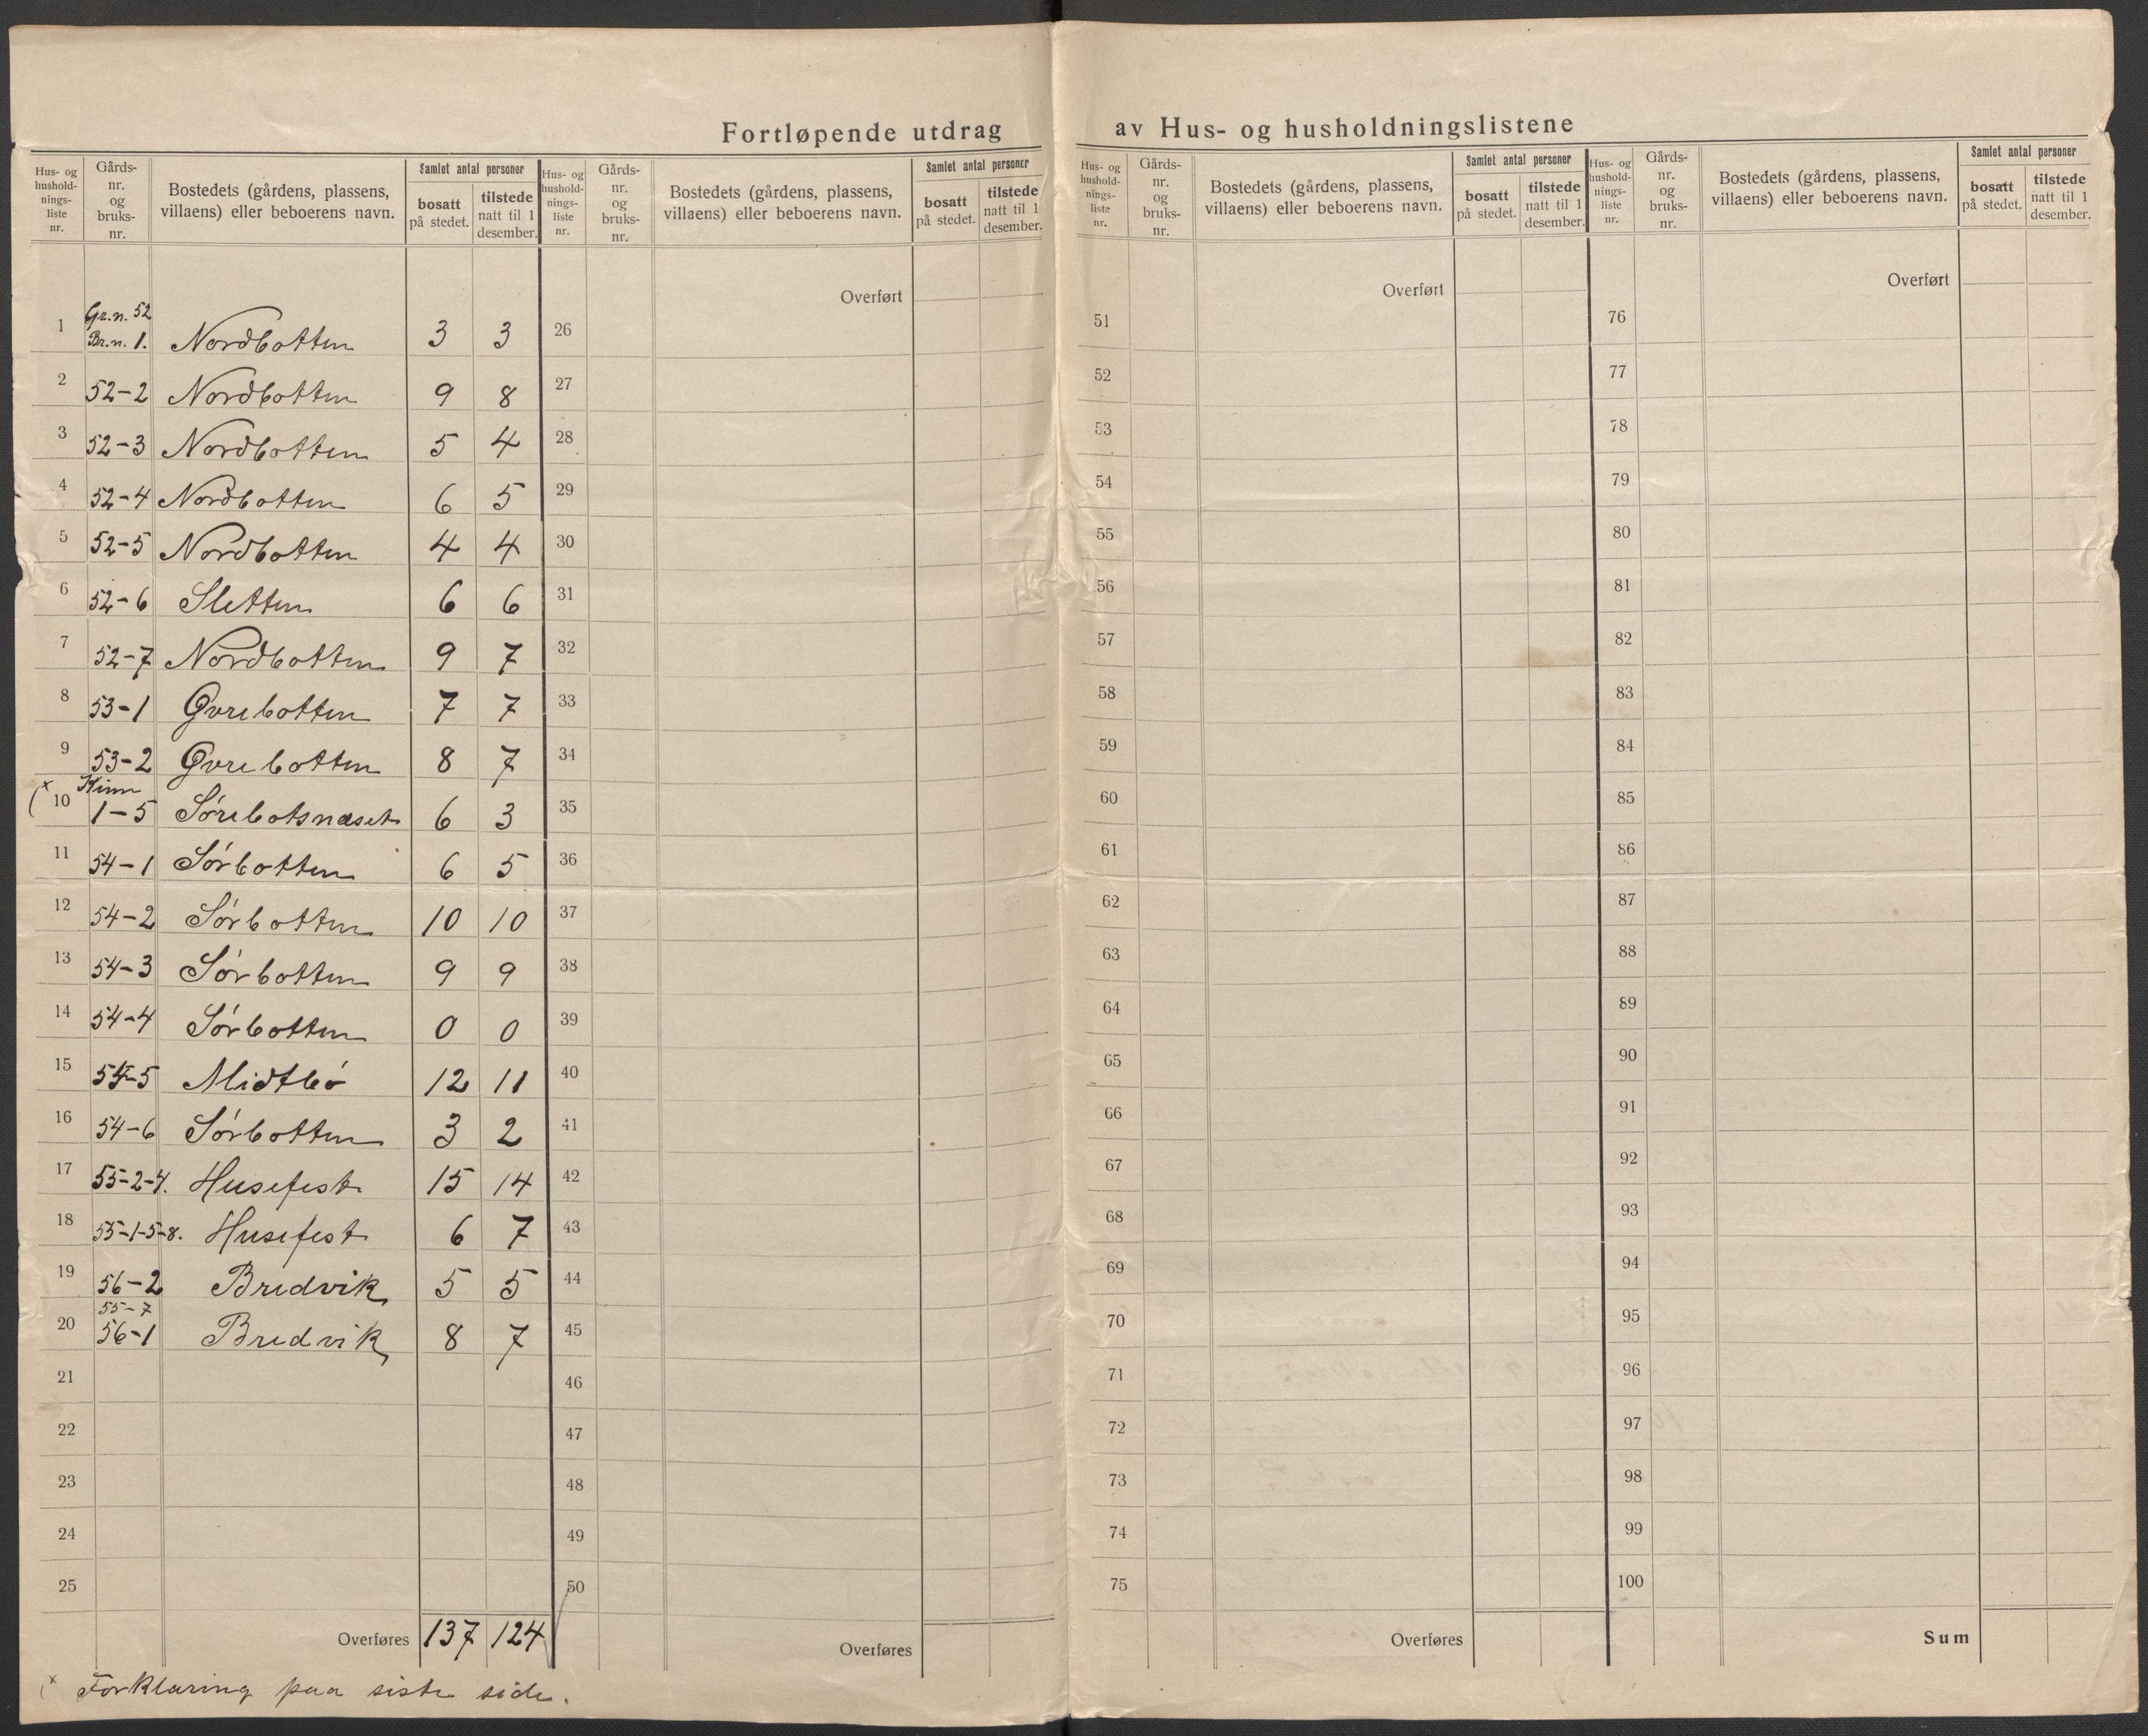 Fortløpende utdrag av Hus- og husholdningslistene
Hus- og hushold-nings-liste nr. | Gårds-nr. og bruks-nr. | Bostedets (gårdens, plassens, villaens) eller beboerens navn. | Samlet antal personer | bosatt på stedet. | tilstede natt til 1 desember.
1 | Gr.n. 52 Br.n. 1. | Nordbotten | 3 | 3
2 | 52-2 | Nordbotten | 9 | 8
3 | 52-3 | Nordbotten | 5 | 4
4 | 52-4 | Nordbotten | 6 | 5
5 | 52-5 | Nordbotten | 4 | 4
6 | 52-6 | Sletten | 6 | 6
7 | 52-7 | Nordbotten | 9 | 7
8 | 53-1 | Øvrebotten | 7 | 7
9 | 53-2 | Øvrebotten | 8 | 7
(x 10 | Kinn 1-5 | Sørebotsnæset | 6 | 3
11 | 54-1 | Sørbotten | 6 | 5
12 | 54-2 | Sørbotten | 10 | 10
13 | 54-3 | Sørbotten | 9 | 9
14 | 54-4 | Sørbotten | 0 | 0
15 | 54-5 | Midtbø | 12 | 11
16 | 54-6 | Sørbotten | 3 | 2
17 | 55-2-4. | Husefest | 15 | 14
18 | 55-1-5-8. | Husefest | 6 | 7
19 | 56-2 | Bredvik | 5 | 5
20 | 55-7 56-1 | Bredvik | 8 | 7
21
22
23
24
25
Overføres | 137 | 124
(x Forklaring paa siste side.
Hus- og hushold-nings-liste nr. | Gårds-nr. og bruks-nr. | Bostedets (gårdens, plassens, villaens) eller beboerens navn. | Samlet antal personer | bosatt på stedet. | tilstede natt til 1 desember.
Overført
26
27
28
29
30
31
32
33
34
35
36
37
38
39
40
41
42
43
44
45
46
47
48
49
50
Overføres
Hus- og hushold-nings-liste nr. | Gårds-nr. og bruks-nr. | Bostedets (gårdens, plassens, villaens) eller beboerens navn. | Samlet antal personer | bosatt på stedet. | tilstede natt til 1 desember.
Overført
51
52
53
54
55
56
57
58
59
60
61
62
63
64
65
66
67
68
69
70
71
72
73
74
75
Overføres
Hus- og hushold-nings-liste nr. | Gårds-nr. og bruks-nr. | Bostedets (gårdens, plassens, villaens) eller beboerens navn. | Samlet antal personer | bosatt på stedet. | tilstede natt til 1 desember.
Overført
76
77
78
79
80
81
82
83
84
85
86
87
88
89
90
91
92
93
94
95
96
97
98
99
100
Sum